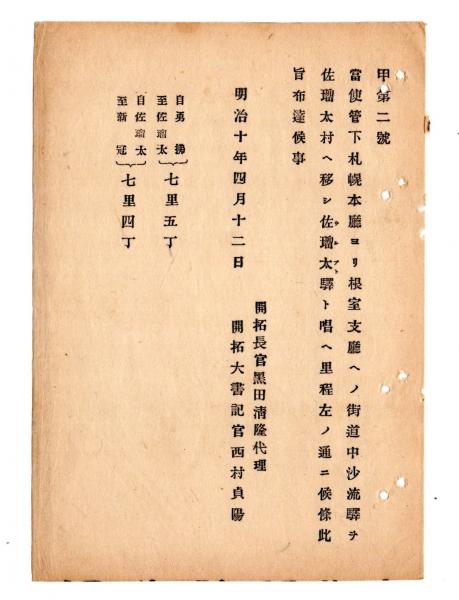 甲第二號
當使管下札幌本廳ヨリ根室支廳ヘノ街道中沙流驛ヲ
佐瑠太村ヘ移シ佐瑠太驛ト唱ヘ里程左ノ通ニ候條此
旨布達候事
明治十年四月十二日
開拓長官黑田淸隆代理
開拓大書記官西村貞陽
自勇拂
至佐瑠太
七里五丁
自佐瑠太
至新冠
七里四丁